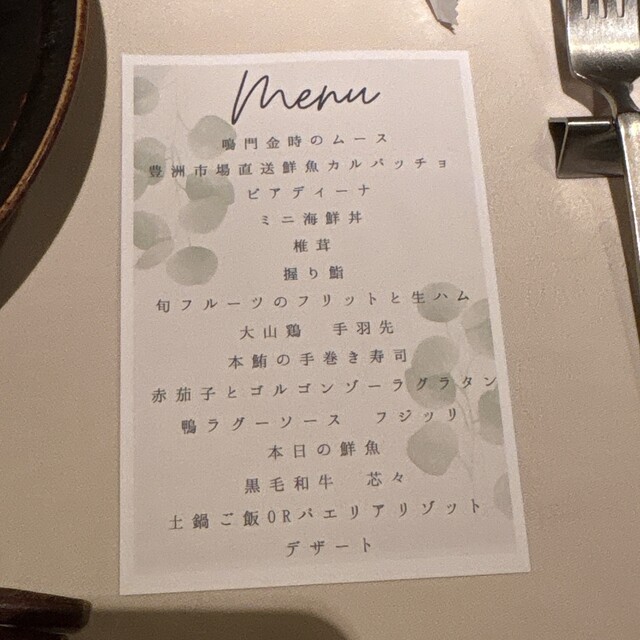 Menu
鳴門金時のムース
豊洲市場直送鮮魚カルパッチョ
ピアディーナ
ミニ海鮮丼
椎茸
握り鮨
旬フルーツのフリットと生ハム
大山鶏 手羽先
本鮪の手巻き寿司
赤茄子とゴルゴンゾーラグラタン
鴨ラグーソース フジッリ
本日の鮮魚
黒毛和牛 芯々
土鍋ご飯ORパエリアリゾット
デザート